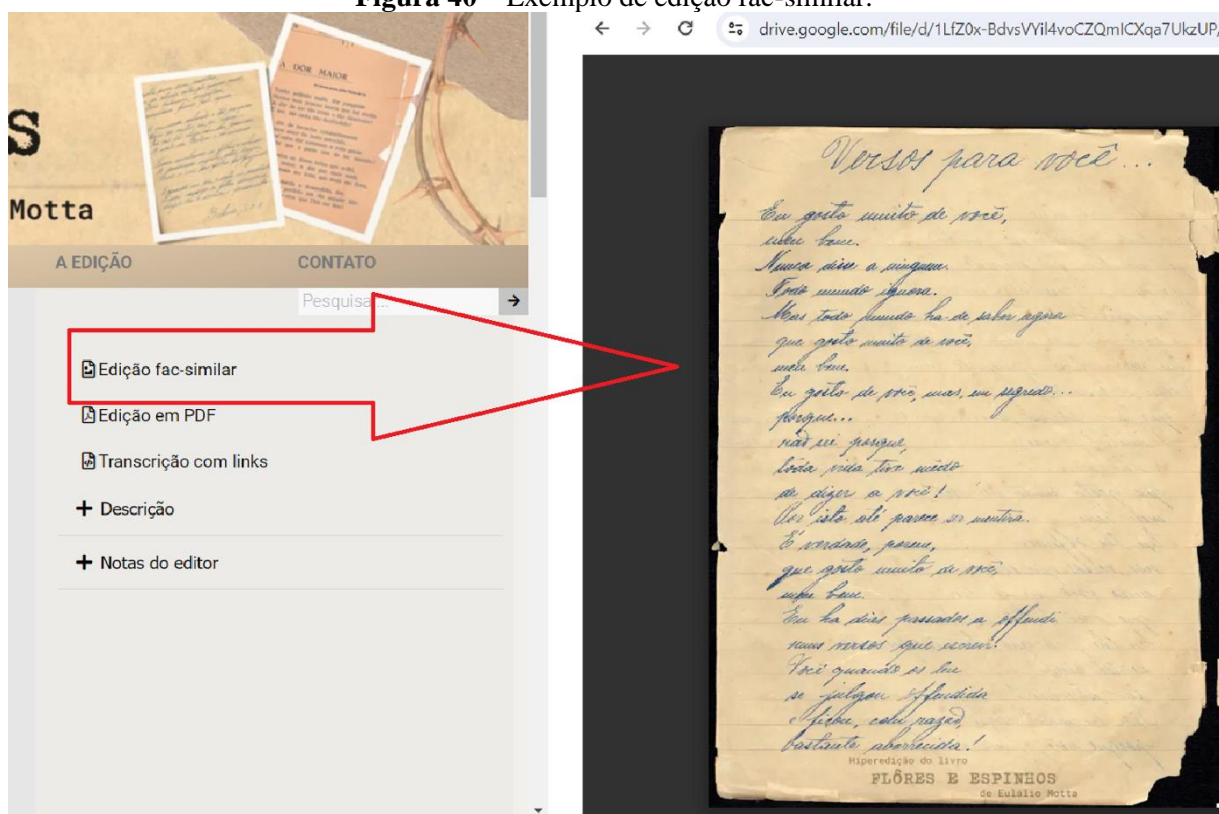 Figura 40 – Exemplo de edição fac-similar.
A DOR MAIOR
S
Motta
A EDIÇÃO
CONTATO
Pesquisa...
Edição fac-similar
Edição em PDF
Transcrição com links
+ Descrição
+ Notas do editor
drive.google.com/file/d/1LfZ0x-BdvsVYil4voCZQmICXqa7UkzUP/
Versos para você...
Eu gosto muito de você,
meu bem.
Nunca disse a ninguem.
Todo mundo ignora.
Mas todo mundo ha de saber agora
que gosto muito de você,
meu bem.
Eu gosto de você, mas, em segredo...
porque...
não sei porque,
tôda vida tive mêdo
de dizer a você!
Por isto até parece ser mentira.
É verdade, porem,
que gosto muito de você,
meu bem.
Eu ha dias passados a offendi
nuns versos que escrevi.
Você quando os leu
se julgou offendida
e ficou, com razão,
bastante aborrecida!
Hiperedição do livro
FLÔRES E ESPINHOS
de Eulálio Motta